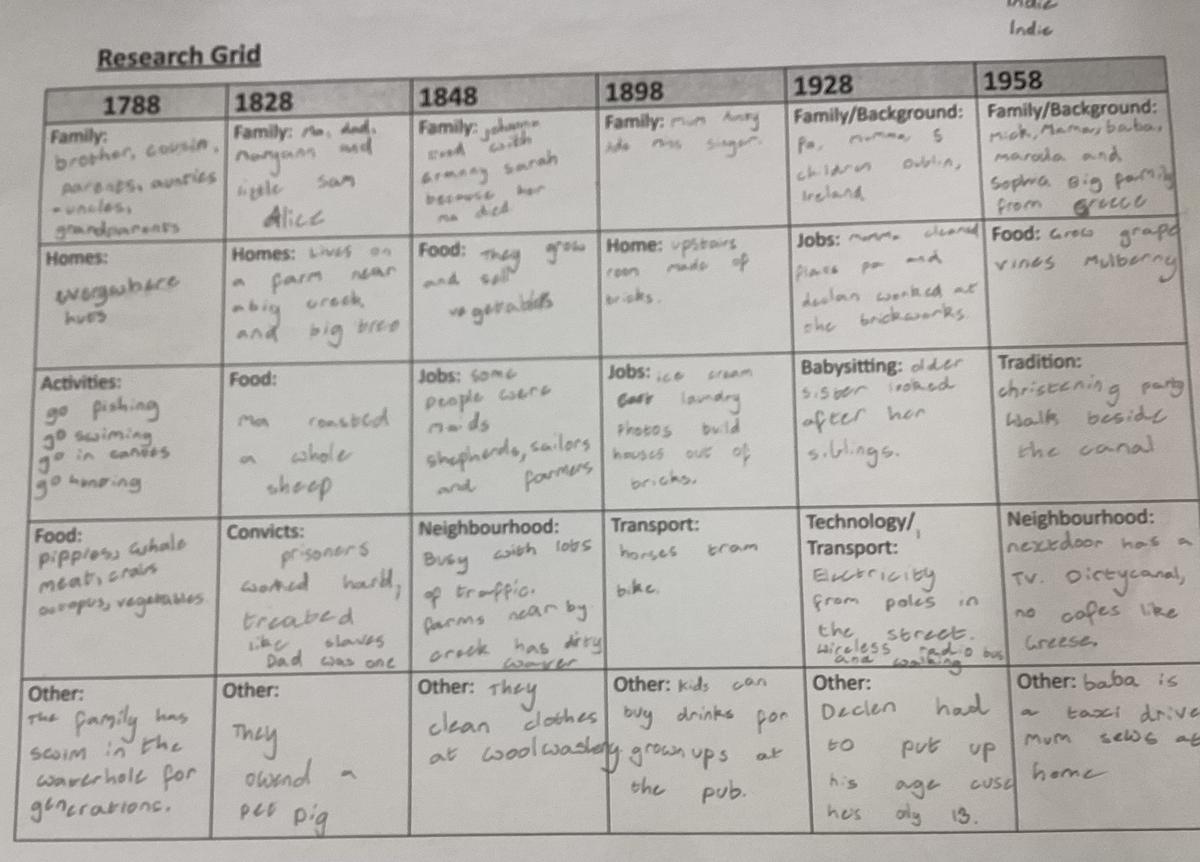 Indie
Research Grid
1788
1828
1848
1898
1928
1958
Family:
brother, cousin,
parents, aunties
uncles,
grandparents
Family: Ma, dad,
Maryann and
little sam
Alice
Family: Johanna
lived with
Granny Sarah
because her
ma died
Family: mum
miss singer.
Family/Background:
Pa, mumma, 5
children Dublin,
Ireland
Family/Background:
Mick, Mama, baba,
maroula and
Sophia Big family
from Greece
Homes:
everywhere
huts
Homes: Lives on
a farm near
a big creek
and big tree
Food: They grow
and sell
vegetables
Home: upstairs
room made of
bricks.
Jobs: mumma cleaned
pa and
declan worked at
the brickworks.
Food: Grow grape
vines Mulberry
Activities:
go fishing
go swiming
go in canoes
go hunting
Food:
Ma roasted
a whole
sheep
Jobs: some
people were
maids
shepherds, sailors
and farmers
Jobs: ice cream
cart laundry
Photos build
houses out of
bricks.
Babysitting: older
sister looked
after her
siblings.
Tradition:
christening party
walk beside
the canal
Food:
pippies, whale
meat, crabs
octopus, vegetables
Convicts:
prisoners
worked hard,
treated
like slaves
Dad was one
Neighbourhood:
Busy with lots
of traffic.
farms near by
creek has dirty
water
Transport:
horses tram
bike.
Technology/
Transport:
Electricity
from poles in
the street.
wireless radio bus
and walking
Neighbourhood:
nextdoor has a
TV. Dirtycanal,
no cafes like
Greese.
Other:
The family has
swim in the
waterhole for
generations.
Other:
They
ownd a
pet pig
Other: They
clean clothes
at woolwashery
Other: Kids can
buy drinks for
grownups at
the pub.
Other:
Declen had
to put up
his age cuse
hes oly 13.
Other: baba is
a taxi drive
Mum sews at
home